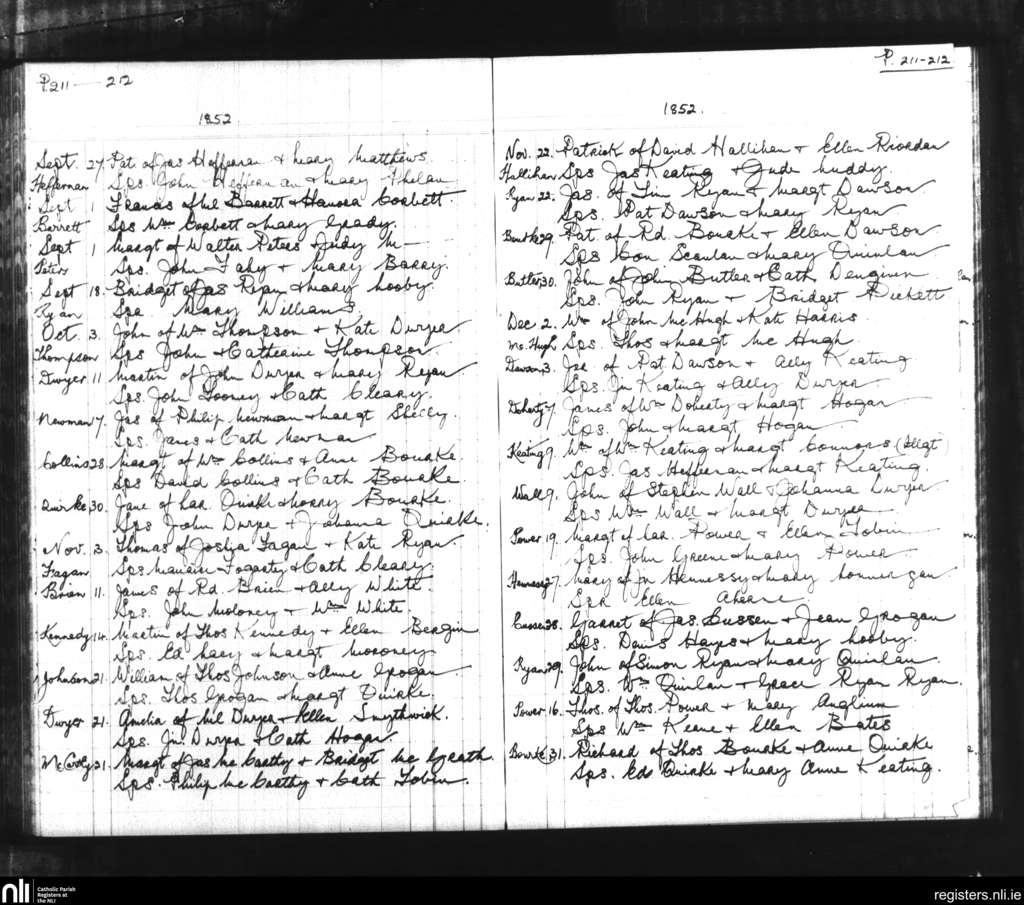 P. 211 — 212
1852
Sept 27 Pat of Jas Heffernan & Mary Matthews.
Heffernan Sps. John Heffernan & Mary Phelan
Sept 1 Francis of Ml Barrett & Hanora Corbett.
Barrett Sps Wm Corbett & Mary Grady.
Sept 1 Margt of Walter Peters & Judy M—
Peters Sps. John Fahy & Mary Barry.
Sept 18. Bridget of Jas Ryan & Mary Looby.
Ryan Spr Mary Williams
Oct 3. John of Wm Thompson & Kate Dwyer
Thompson Sps John & Catherine Thompson.
Dwyer 11 Martin of John Dwyer & Mary Ryan
Sps. John Looney & Cath Cleary.
Newman 17. Jas of Philip Newman & Margt Skelly.
Sps. James & Cath Newman
Collins 28. Margt of Wm Collins & Anne Bourke.
Sps David Collins & Cath Bourke.
Quirke 30. Jane of Lar. Quirke & Bourke.
Sps John Dwyer & Johanna Quirke.
Nov. 3. Thomas of Fagan & Kate Ryan.
Fagan Sps Maurice Fogarty & Cath Cleary.
Brien 11. James of Rd. Brien & Ally White.
Sps. John Moloney & Wm White.
Kennedy 14. Martin of Thos Kennedy & Ellen Bergin
Sps. Ed Lacy & Margt Moroney
Johnson 21. William of Thos Johnson & Anne Grogan.
Sps. Thos Grogan & Margt Quirke.
Dwyer 21. Amelia of Ml Dwyer & Ellen Smythwick.
Sps. Jn Dwyer & Cath Hogan.
McCarthy 21. Margt of Jas McCarthy & Bridget McGrath.
Sps. Philip McCarthy & Cath Tobin.
P. 211-212
1852.
Nov. 22. Patrick of David Hallihan & Ellen Riordan
Hallihan Sps Jas Keating & Jude Luddy.
Ryan 22. Jas. of Tim Ryan & Margt Dawson
Sps. Pat Dawson & Mary Ryan
Bourke 29. Pat. of Rd. Bourke & Ellen Dawson
Sps Con Scanlan & Mary Quinlan
Butler 30. John of John Butler & Cath
Sps. John Ryan & Bridget Pickett
Dec 2. Wm of John McHugh & Kate Harris.
McHugh Sps. Thos & Margt McHugh.
Dawson 3. of Pat Dawson & Ally Keating
Sps. Jn Keating & Ally Dwyer
Doherty 7. James of Wm Doherty & Margt Hogan
Sps. John & Margt Hogan
Keating 9. Wm of Wm Keating & Margt Connors (Illgt)
Sps. Jas Heffernan & Margt Keating.
Wall 9. John of Stephen Wall & Johanna Dwyer
Sps Wm Wall & Margt Dwyer
Power 19. Margt of Lar. Power & Ellen Tobin
Sps. John Greene & Mary Power
Hennessy 27. Mary of Jn Hennessy & Mary Lonnergan
Spr Ellen Ahearne
Cussen 28. Garret of Jas. Cussen & Jean Grogan
Sps. Denis Hayes & Mary Looby.
Ryan 29. John of Simon Ryan & Mary Quinlan.
Sps. Wm Quinlan & Grace Ryan Ryan.
Power 16. Thos. of Thos. Power & Mary Anglium
Sps Wm Keane & Ellen Bates
Bourke 31. Richard of Thos Bourke & Anne Quirke
Sps. Ed Quirke & Mary Anne Keating.
nli
Catholic Parish
Registers at
the NLI
registers.nli.ie